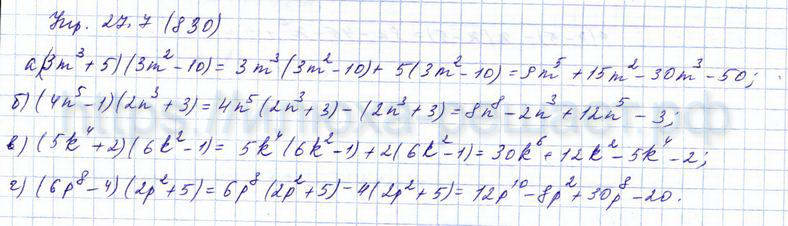 Упр. 27.7 (830)
а) (3m³ + 5)(3m² - 10) = 3m³(3m² - 10) + 5(3m² - 10) = 9m⁵ + 15m² - 30m³ - 50;
б) (4n⁵ - 1)(2n³ + 3) = 4n⁵(2n³ + 3) - (2n³ + 3) = 8n⁸ - 2n³ + 12n⁵ - 3;
в) (5k⁴ + 2)(6k² - 1) = 5k⁴(6k² - 1) + 2(6k² - 1) = 30k⁶ + 12k² - 5k⁴ - 2;
г) (6p⁸ - 4)(2p² + 5) = 6p⁸(2p² + 5) - 4(2p² + 5) = 12p¹⁰ - 8p² + 30p⁸ - 20.